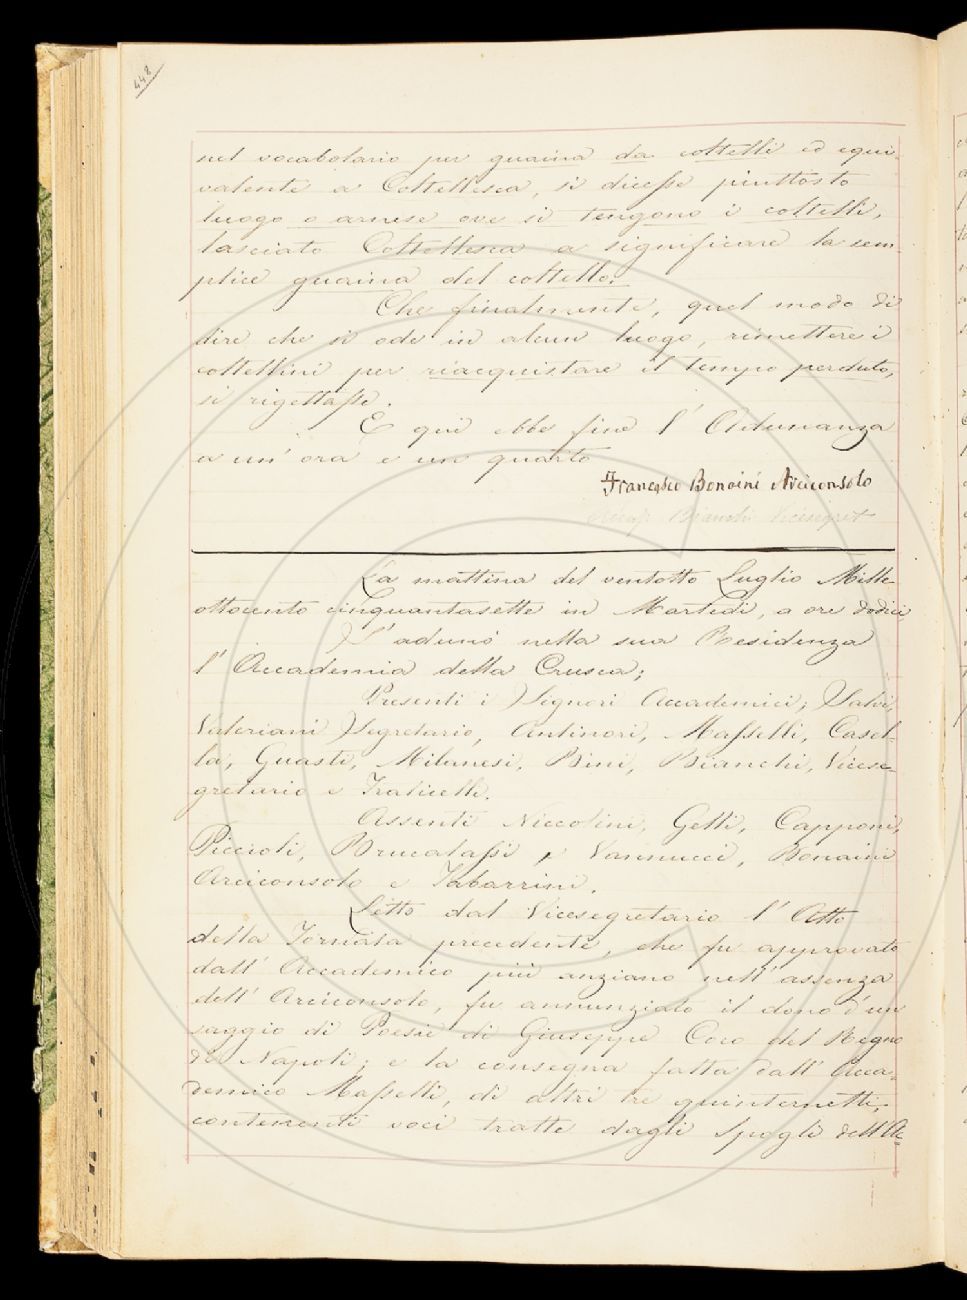 448
nel vocabolario per guaina da coltelli ed equi-
valente a Coltellesca, si dicesse piuttosto
luogo o arnese ove si tengono i coltelli,
lasciato Coltellesca a significare la sem-
plice guaina del coltello.
Che finalmente, quel modo di
dire che si ode in alcun luogo, rimettere i
coltellini per riacquistare il tempo perduto,
si rigettasse.
E qui ebbe fine l' Adunanza
a un' ora e un quarto
Francesco Bonaini Arciconsolo
Bianchi Vicesegret
La mattina del ventotto Luglio Mille-
ottocento cinquantasette in Martedì, a ore dodici
S' adunò nella sua Residenza
l' Accademia della Crusca;
Presenti i Signori Accademici; Salvi,
Valeriani Segretario, Antinori, Masselli, Casel-
la, Guasti, Milanesi, Bini, Bianchi, Vicese-
gretario e Fraticelli.
Assenti Niccolini, Gelli, Capponi,
Piccioli, Brucalassi e Vannucci, Bonaini
Arciconsolo e Tabarrini.
Letto dal Vicesegretario l' Atto
della Tornata precedente, che fu approvato
dall' Accademico più anziano nell' assenza
dell' Arciconsolo, fu annunziato il dono d'un
saggio di Poesie di Giuseppe Coco del Regno
di Napoli; e la consegna fatta dall' Acca-
demico Masselli, di altri tre quinternetti,
contenenti voci tratte dagli Spogli dell' Ac-